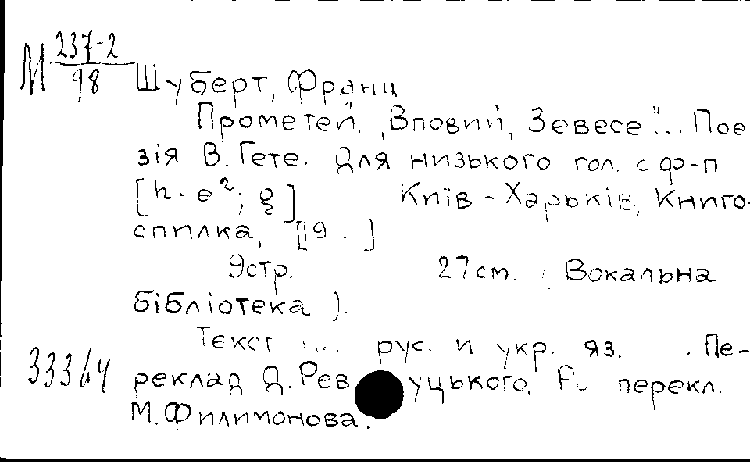 М 237-2
98
Шуберт, Франц
Прометей. „Вповий, Зевесе"... Пое
зія В. Гете. Для низького гол. с ф-п
[h - e²; g] Київ - Харьків, Книго-
спилка, [19 . ]
9стр. 27см. (Вокальна
бібліотека).
Текст рус. и укр. яз. . Пе-
33364 реклад Д. Рев уцького. перекл.
М. Филимонова.